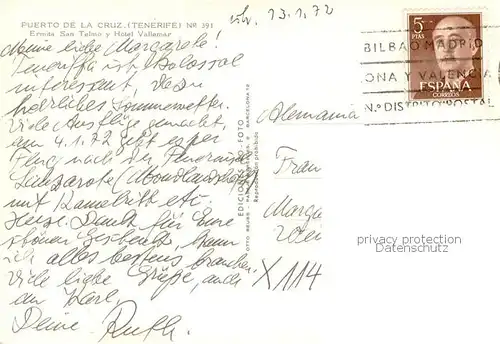 PUERTO DE LA CRUZ. (TENERIFE) Nº 391
Ermita San Telmo y Hotel Vallamar
13.1.72
Meine liebe Margarote!
Teneriffa ist kolossal
interessant, dazu
herrliches Sommerwetter.
Viele Ausflüge gemacht,
am 4.1.72 geht es per
Flug nach der
Lanzarote (Mondlandschaft)
mit Kamelritt etc.
Herzl. Dank für Eure
schönen Geschenke, kann
ich alles bestens brauchen.
Viele liebe Grüße, auch
an Karl,
Deine Ruth.
EDICIONES FOTO
Reproducción prohibida
5
PTAS
ESPAÑA
CORREOS
BILBAO MADRID
ONA Y VALENCIA
N.º DISTRITO POSTAL
Alemania
Frau
X 114
privacy protection
Datenschutz